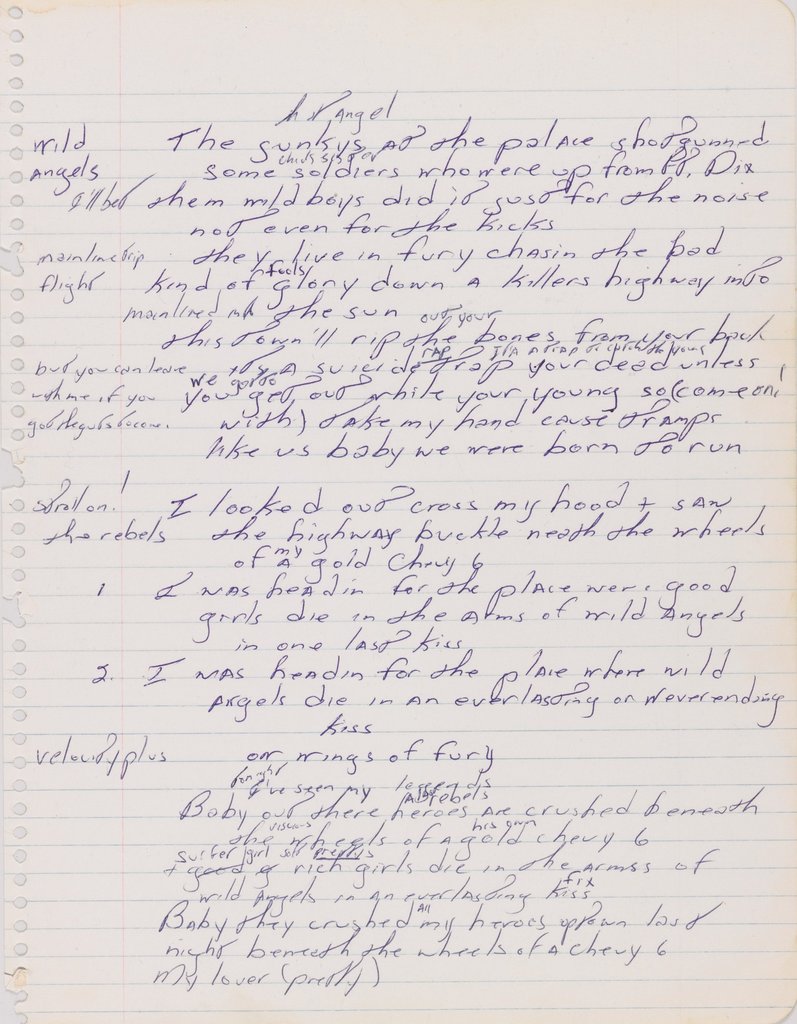 Angel
wild The gunkys at the palace shotgunned
angels some soldiers who were up from Ft. Dix
I'll bet them wild boys did it just for the noise
not even for the kicks
mainline trip they live in fury chasin the bad
flight fools
kind of glory down a killers highway into
mainlined the sun out your
this town'll rip the bones from your back
rap its a trap to catch the young
but you can leave its a suicide trap your dead unless
with me if you we got to you get out while your young so (come on!
got the guts to come. with) take my hand cause tramps
like us baby we were born to run
stroll on! I looked out cross my hood + saw
the rebels the highway buckle neath the wheels
my
of a gold Chevy 6
1 I was headin for the place were good
girls die in the arms of wild Angels
in one last kiss
2. I was headin for the place where wild
Angels die in an everlasting or Neverending
kiss
velocity plus on wings of fury
tonight I've seen my legends
all rebels
Baby out there heroes are crushed beneath
visions his own
the wheels of a gold chevy 6
surfer girl
+ good rich girls die in the armss of
wild Angels in an everlasting kiss
fix
All
Baby they crushed my heroes uptown last
night beneath the wheels of a chevy 6
My lover (pretty)